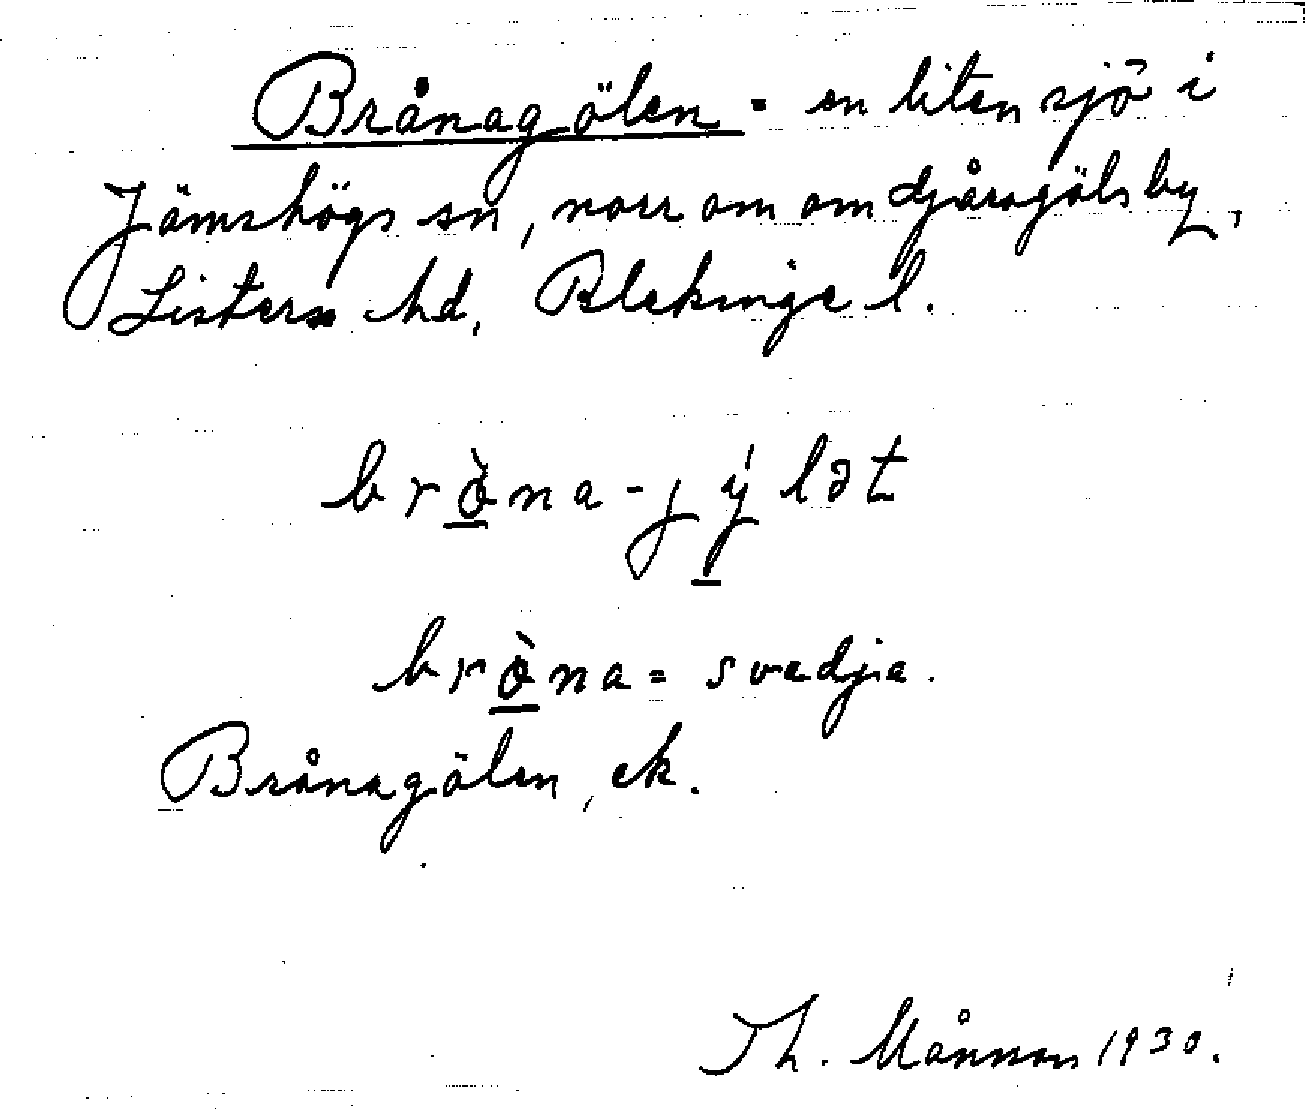 Brånagölen = en liten sjö i
Jämshögs sn, norr om om djåragöls by,
Listers hd, Blekinge l.
brò̱na-jý̱lət
brò̱na = svedja.
Brånagölen, ek.
Th. Månsson 1930.